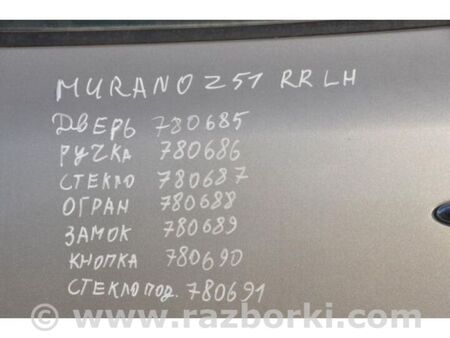 MURANO Z51 RR LH
ДВЕРЬ 780685
РУЧКА 780686
СТЕКЛО 780687
ОГРАН 780688
ЗАМОК 780689
КНОПКА 780690
СТЕКЛОПОД. 780691
© www.razborki.com